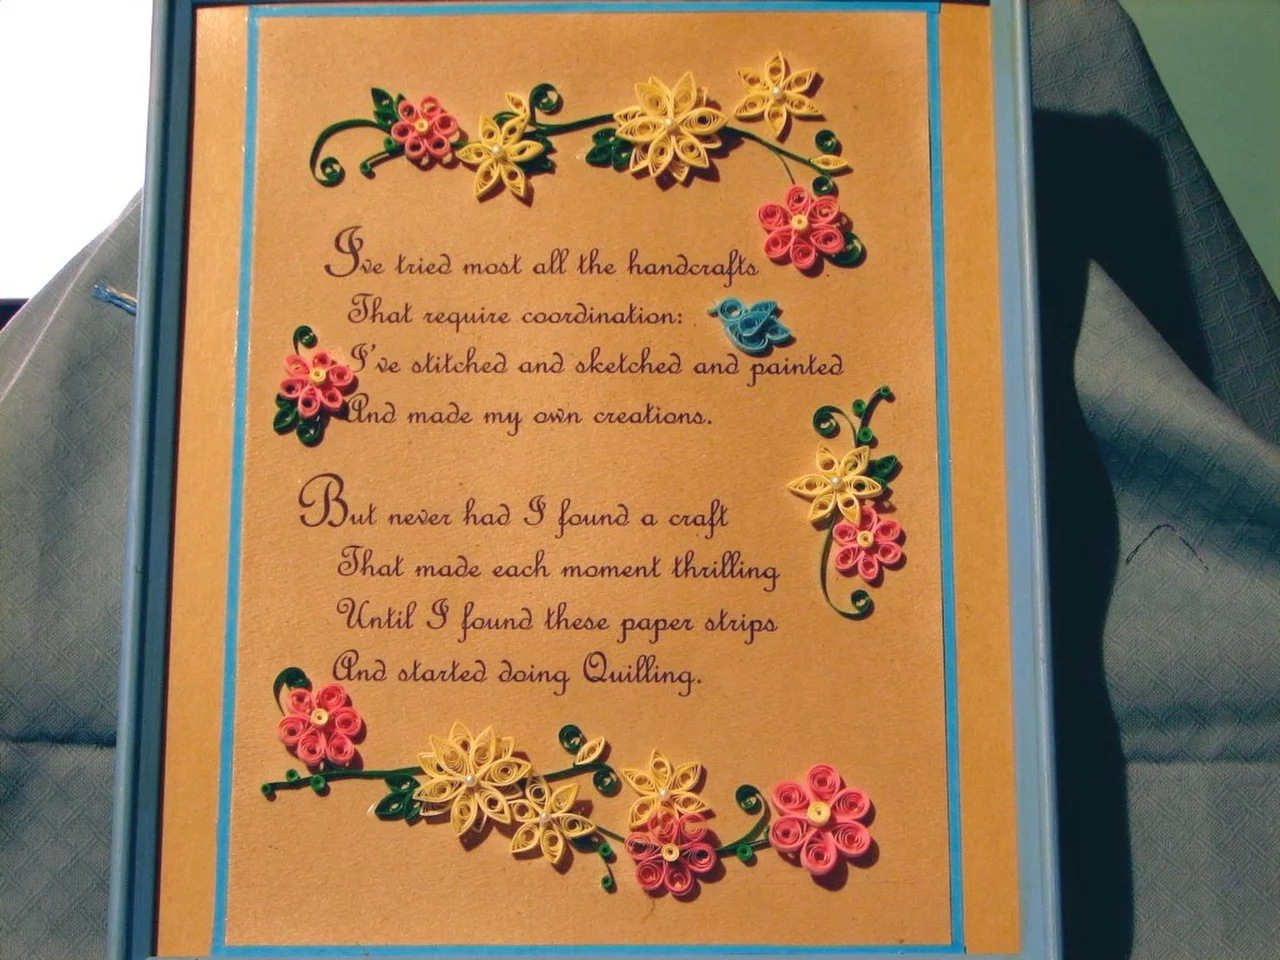 I've tried most all the handcrafts
That require coordination:
I've stitched and sketched and painted
And made my own creations.
But never had I found a craft
That made each moment thrilling
Until I found these paper strips
And started doing Quilling.